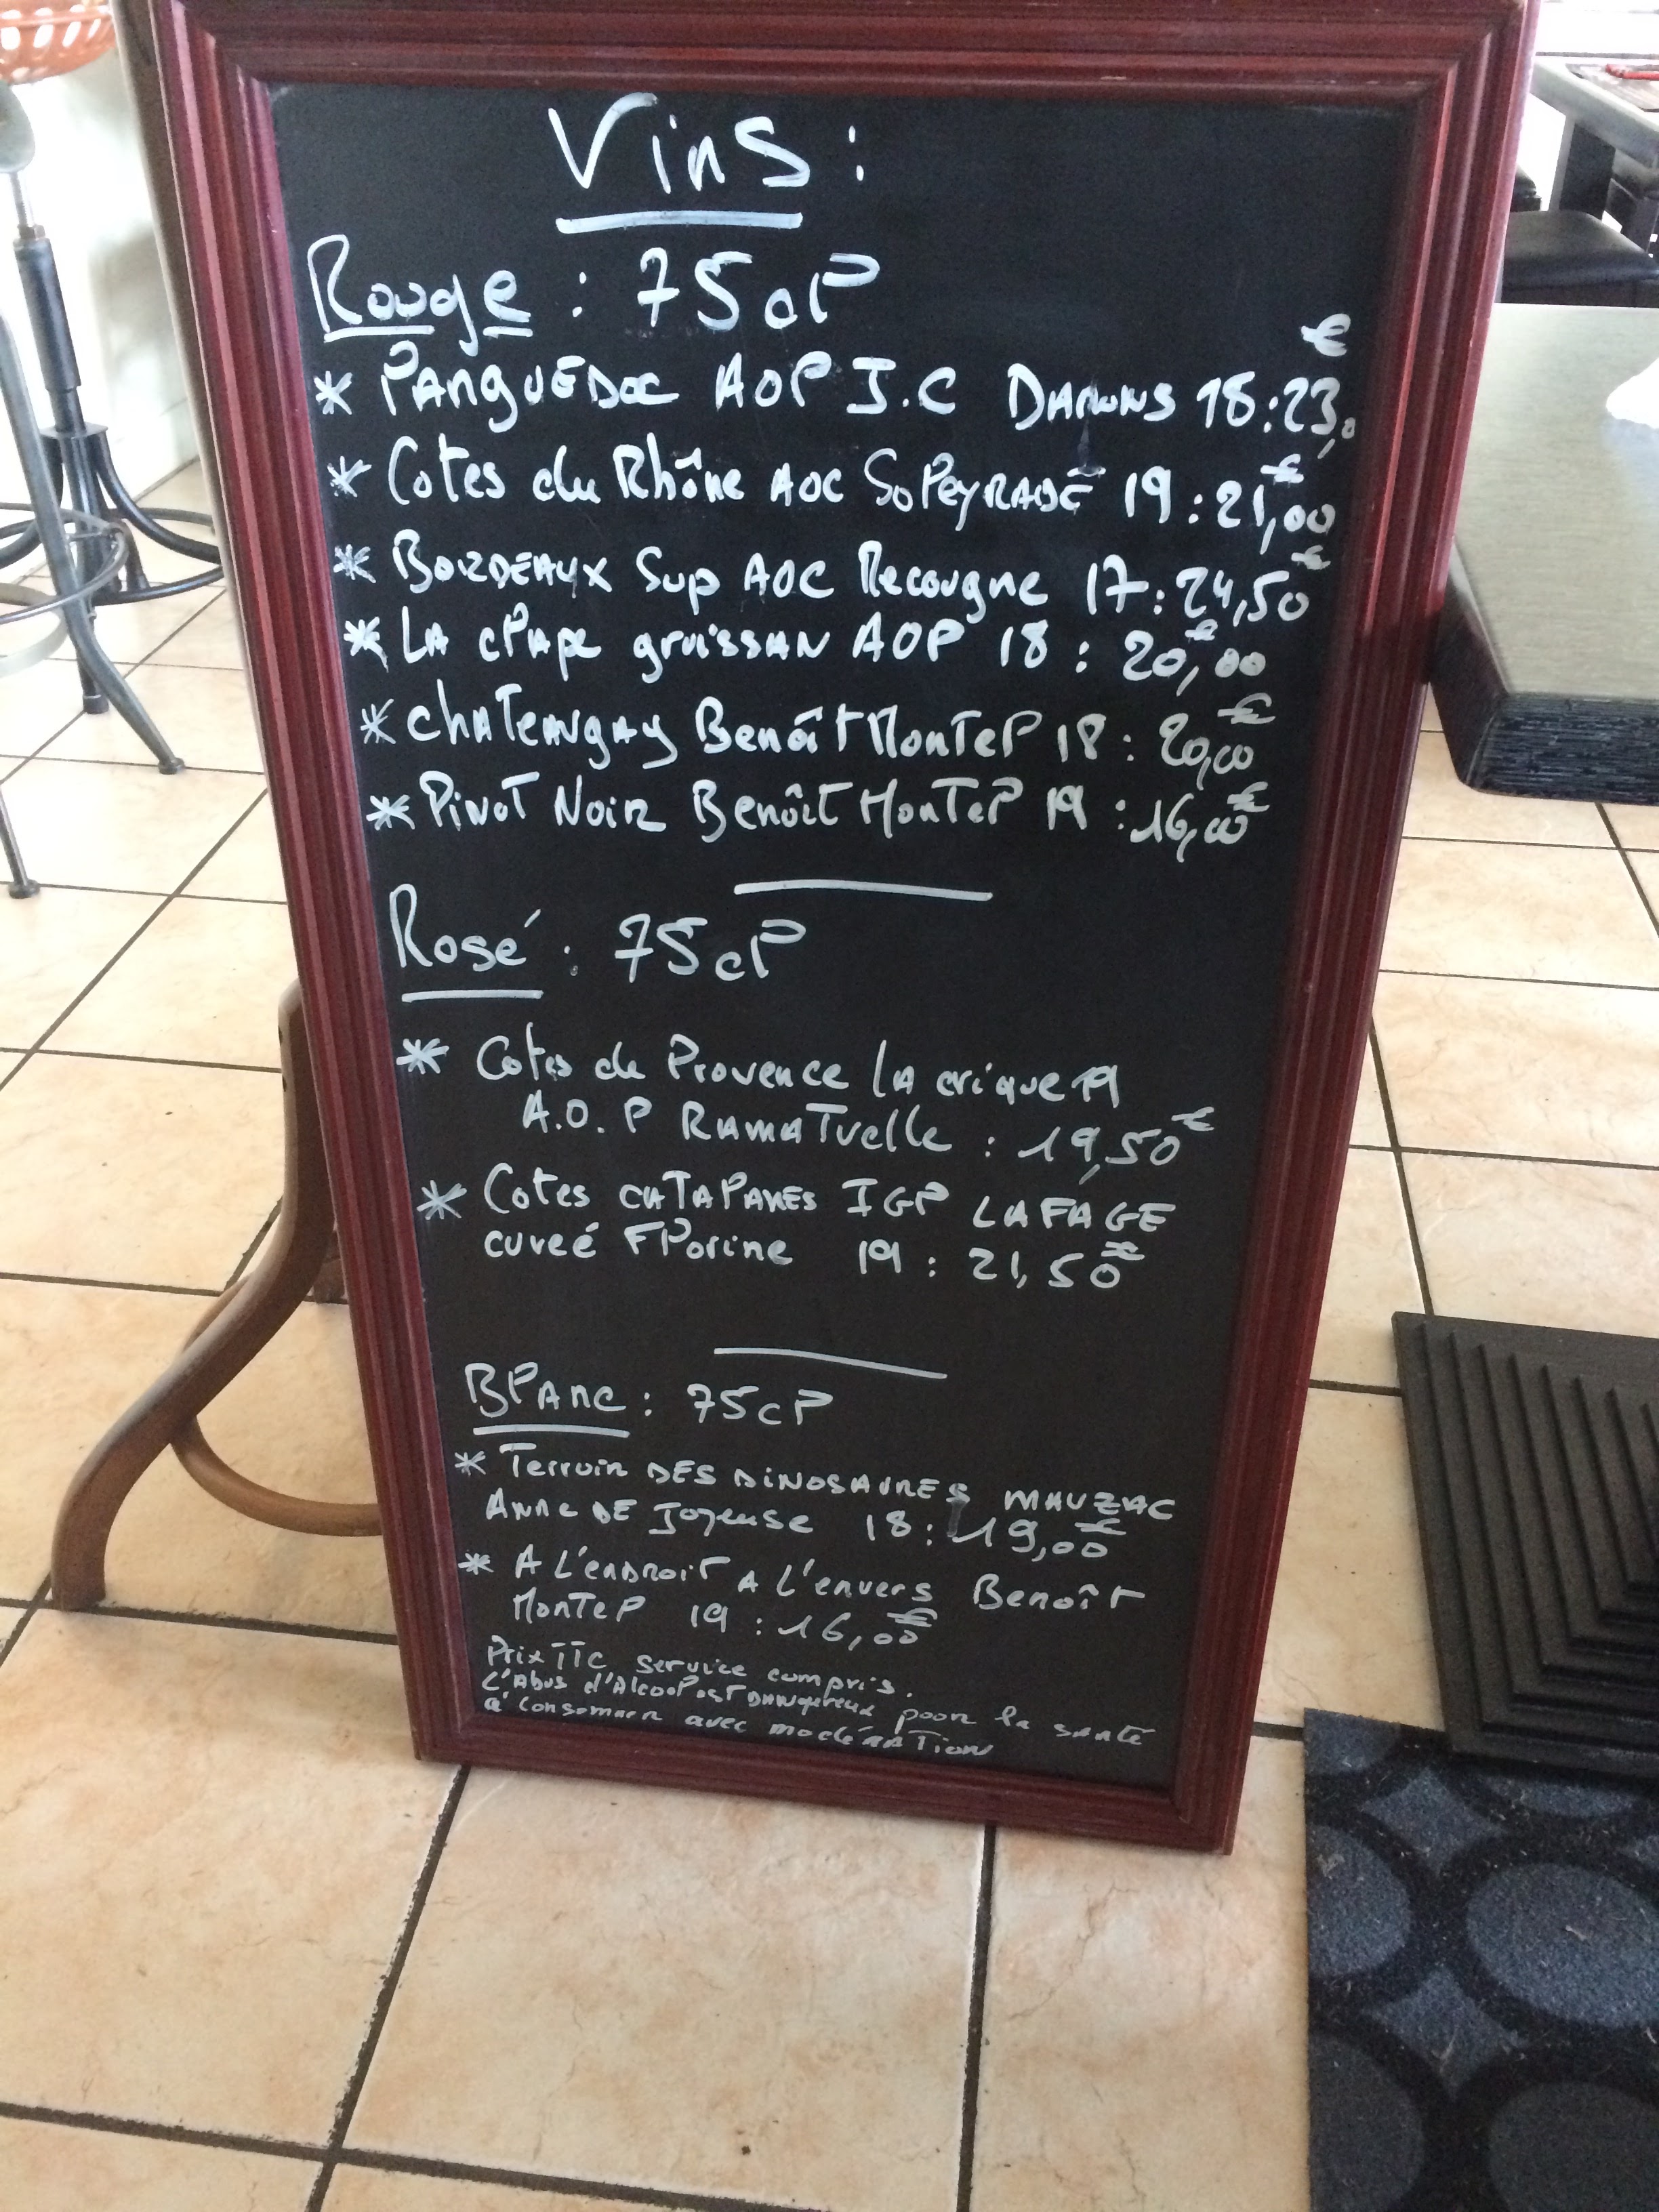 Vins :
Rouge : 75 cl
* Languedoc AOP J.C Damons 18 : 23,0 €
* Cotes du Rhône AOC SoleyRADE 19 : 21,00 €
* BORDEAUX Sup AOC Recougne 17 : 24,50 €
* LA clape gruissAN AOP 18 : 20,00 €
* chATeaugAy Benoît MonTel 18 : 20,00 €
* Pinot Noir Benoît MonTel 19 : 16,00 €
Rosé : 75 cl
* Cotes de Provence LA crique 19
A.O.P RAmATuelle : 19,50 €
* Cotes CATALANES IGP LAFAGE
cuveé Florine 19 : 21,50 €
BlAnc : 75cl
* Terroir DES DiNOSAURES MAUZAC
Anne DE Joyeuse 18 : 19,00 €
* A L'enDroiT A L'envers Benoît
MonTel 19 : 16,00 €
Prix TTC service compris.
L'Abus d'Alcool est DANgereux pour la santé
a consommer avec modérATion